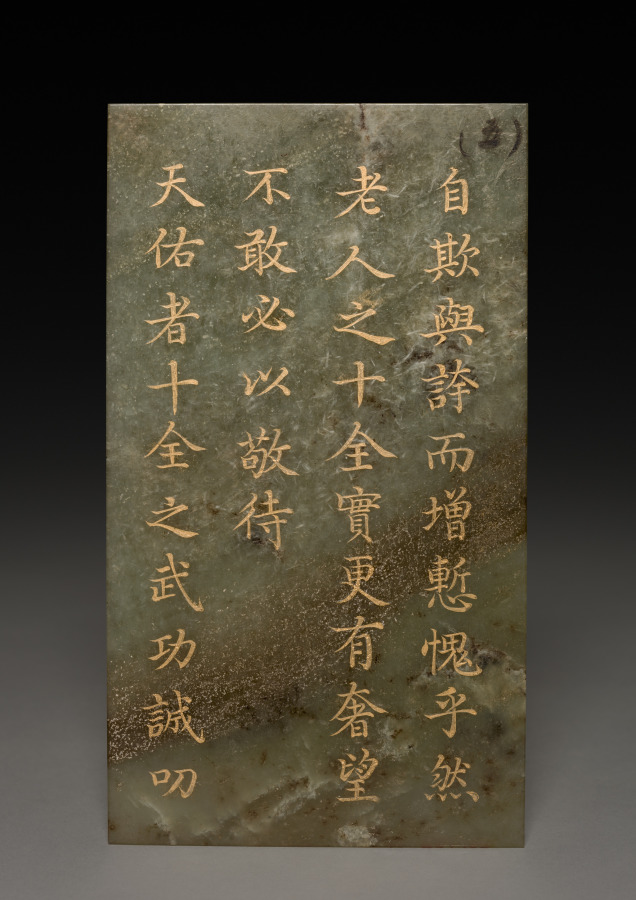 (五)
自欺與誇而增慙愧乎然
老人之十全實更有奢望
不敢必以敬待
天佑者十全之武功誠叨